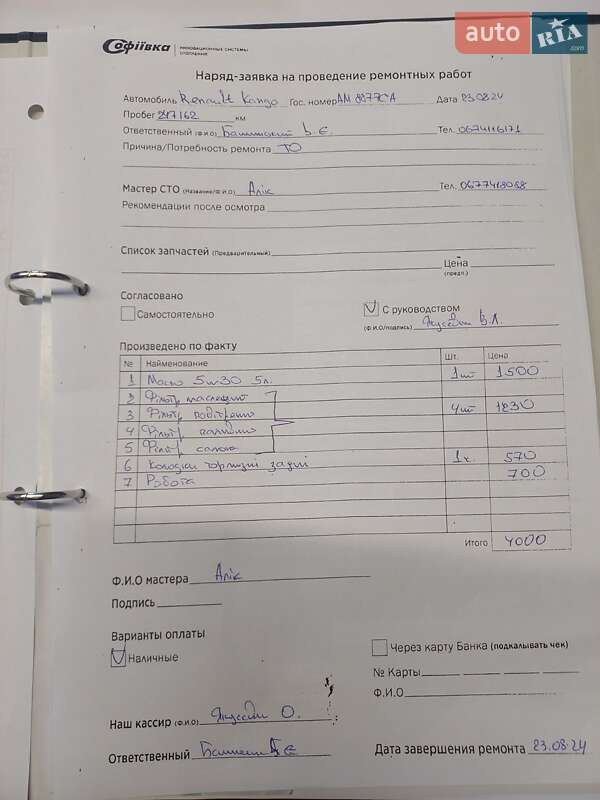 auto RIA .com
Софіївка ИННОВАЦИОННЫЕ СИСТЕМЫ
ОТОПЛЕНИЯ
Наряд-заявка на проведение ремонтных работ
Автомобиль Renault Kango Гос. номер АМ 8877СА Дата 23.08.24
Пробег 247162 км
Ответственный (Ф.И.О) В.Є. Тел. 0674116171
Причина/Потребность ремонта ТО
Мастер СТО (Название/Ф.И.О) Алік Тел. 0677418088
Рекомендации после осмотра
Список запчастей (Предварительный)
Цена
(предл.)
Согласовано
Самостоятельно
С руководством
(Ф.И.О/подпись) В.Л.
Произведено по факту
№ Найменование Шт. Цена
1 Масло 5w30 5л. 1шт 1500
2 Фільтр масляний
3 Фільтр повітряно 4шт 1230
4 Фільтр паливно
5 Фільтр салона
6 Колодки тормозні задні 1к. 570
7 Робота 700
Итого 4000
Ф.И.О мастера Алік
Подпись
Варианты оплаты
Наличные
Через карту Банка (подкалывать чек)
№ Карты
Ф.И.О
Наш кассир (Ф.И.О) О.
Ответственный
Дата завершения ремонта 23.08.24